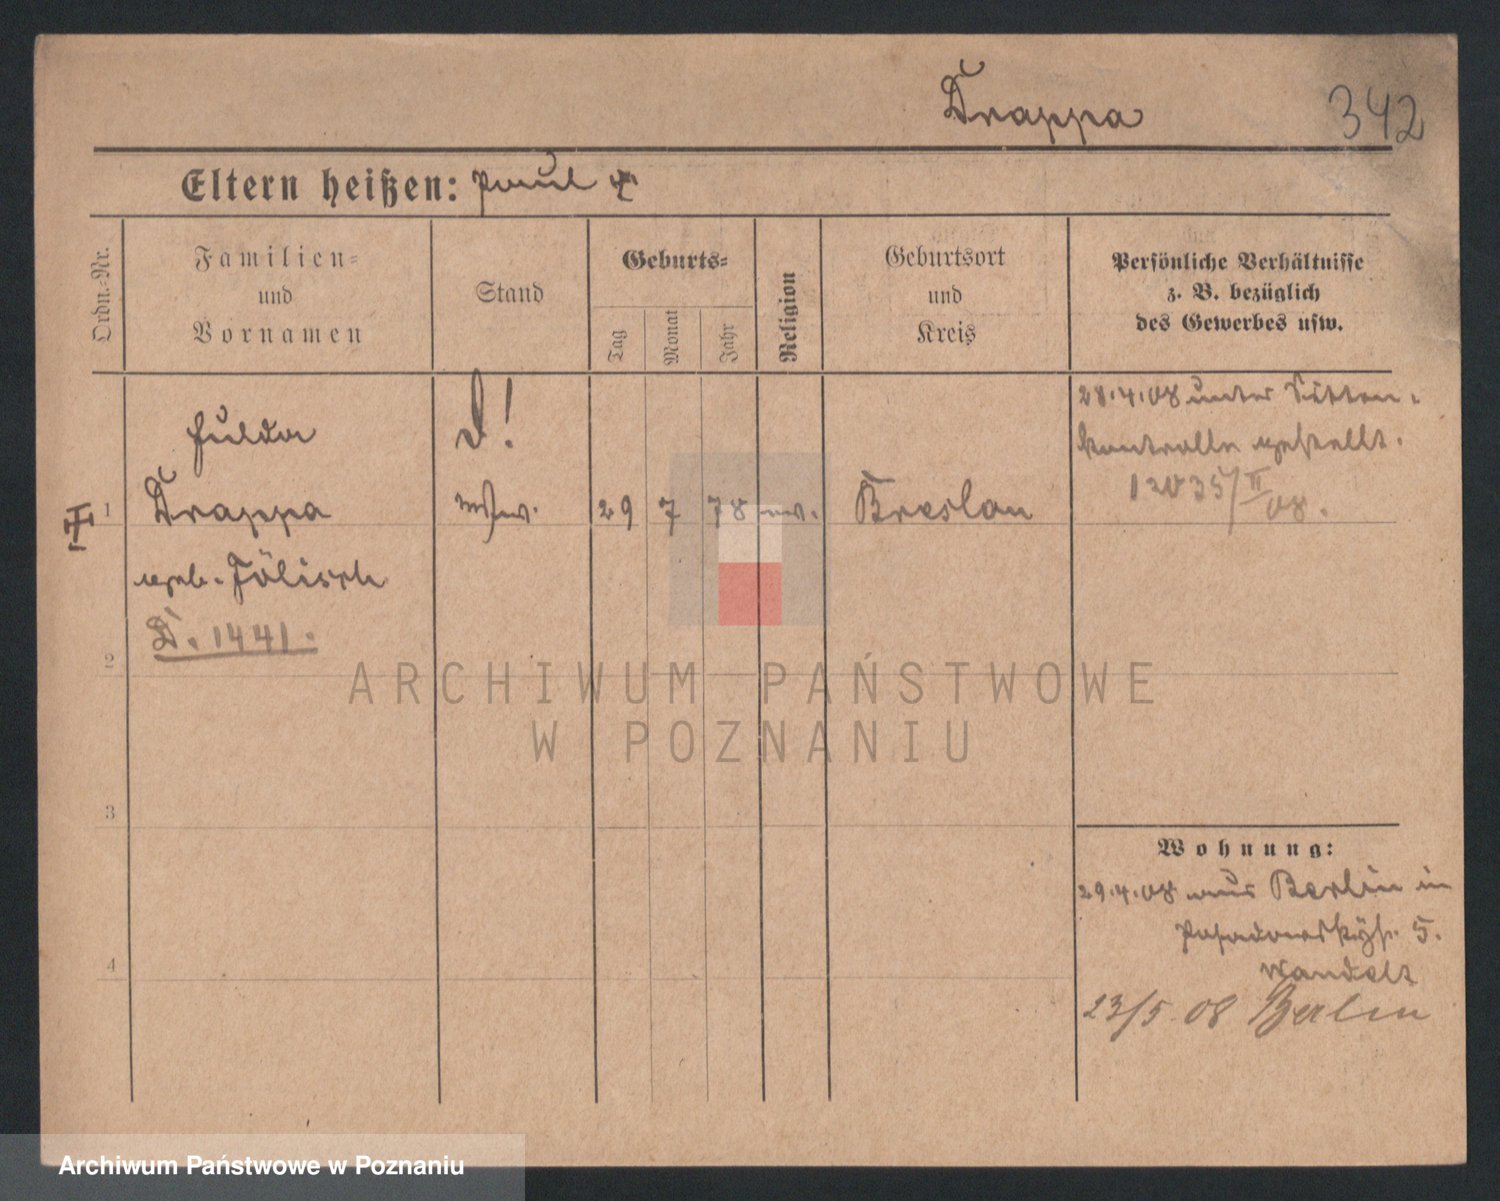 Trappa
342
Eltern heißen: Paul
Ordn.-Nr.
Familien-
und
Vornamen
Stand
Geburts-
Tag
Monat
Jahr
Religion
Geburtsort
und
Kreis
Persönliche Verhältnisse
z. B. bezüglich
des Gewerbes usw.
28.4.08 unter Sitten-
kontrolle gestellt.
12035/II/08.
Hulda
D!
1
Trappa
29
7
78
ev.
Breslau
geb. Jölisch
D. 1441.
2
ARCHIWUM PAŃSTWOWE
W POZNANIU
3
Wohnung:
29.4.08 aus Berlin in
Posadowskystr. 5.
Wandelt
4
23/5 08 Berlin
Archiwum Państwowe w Poznaniu